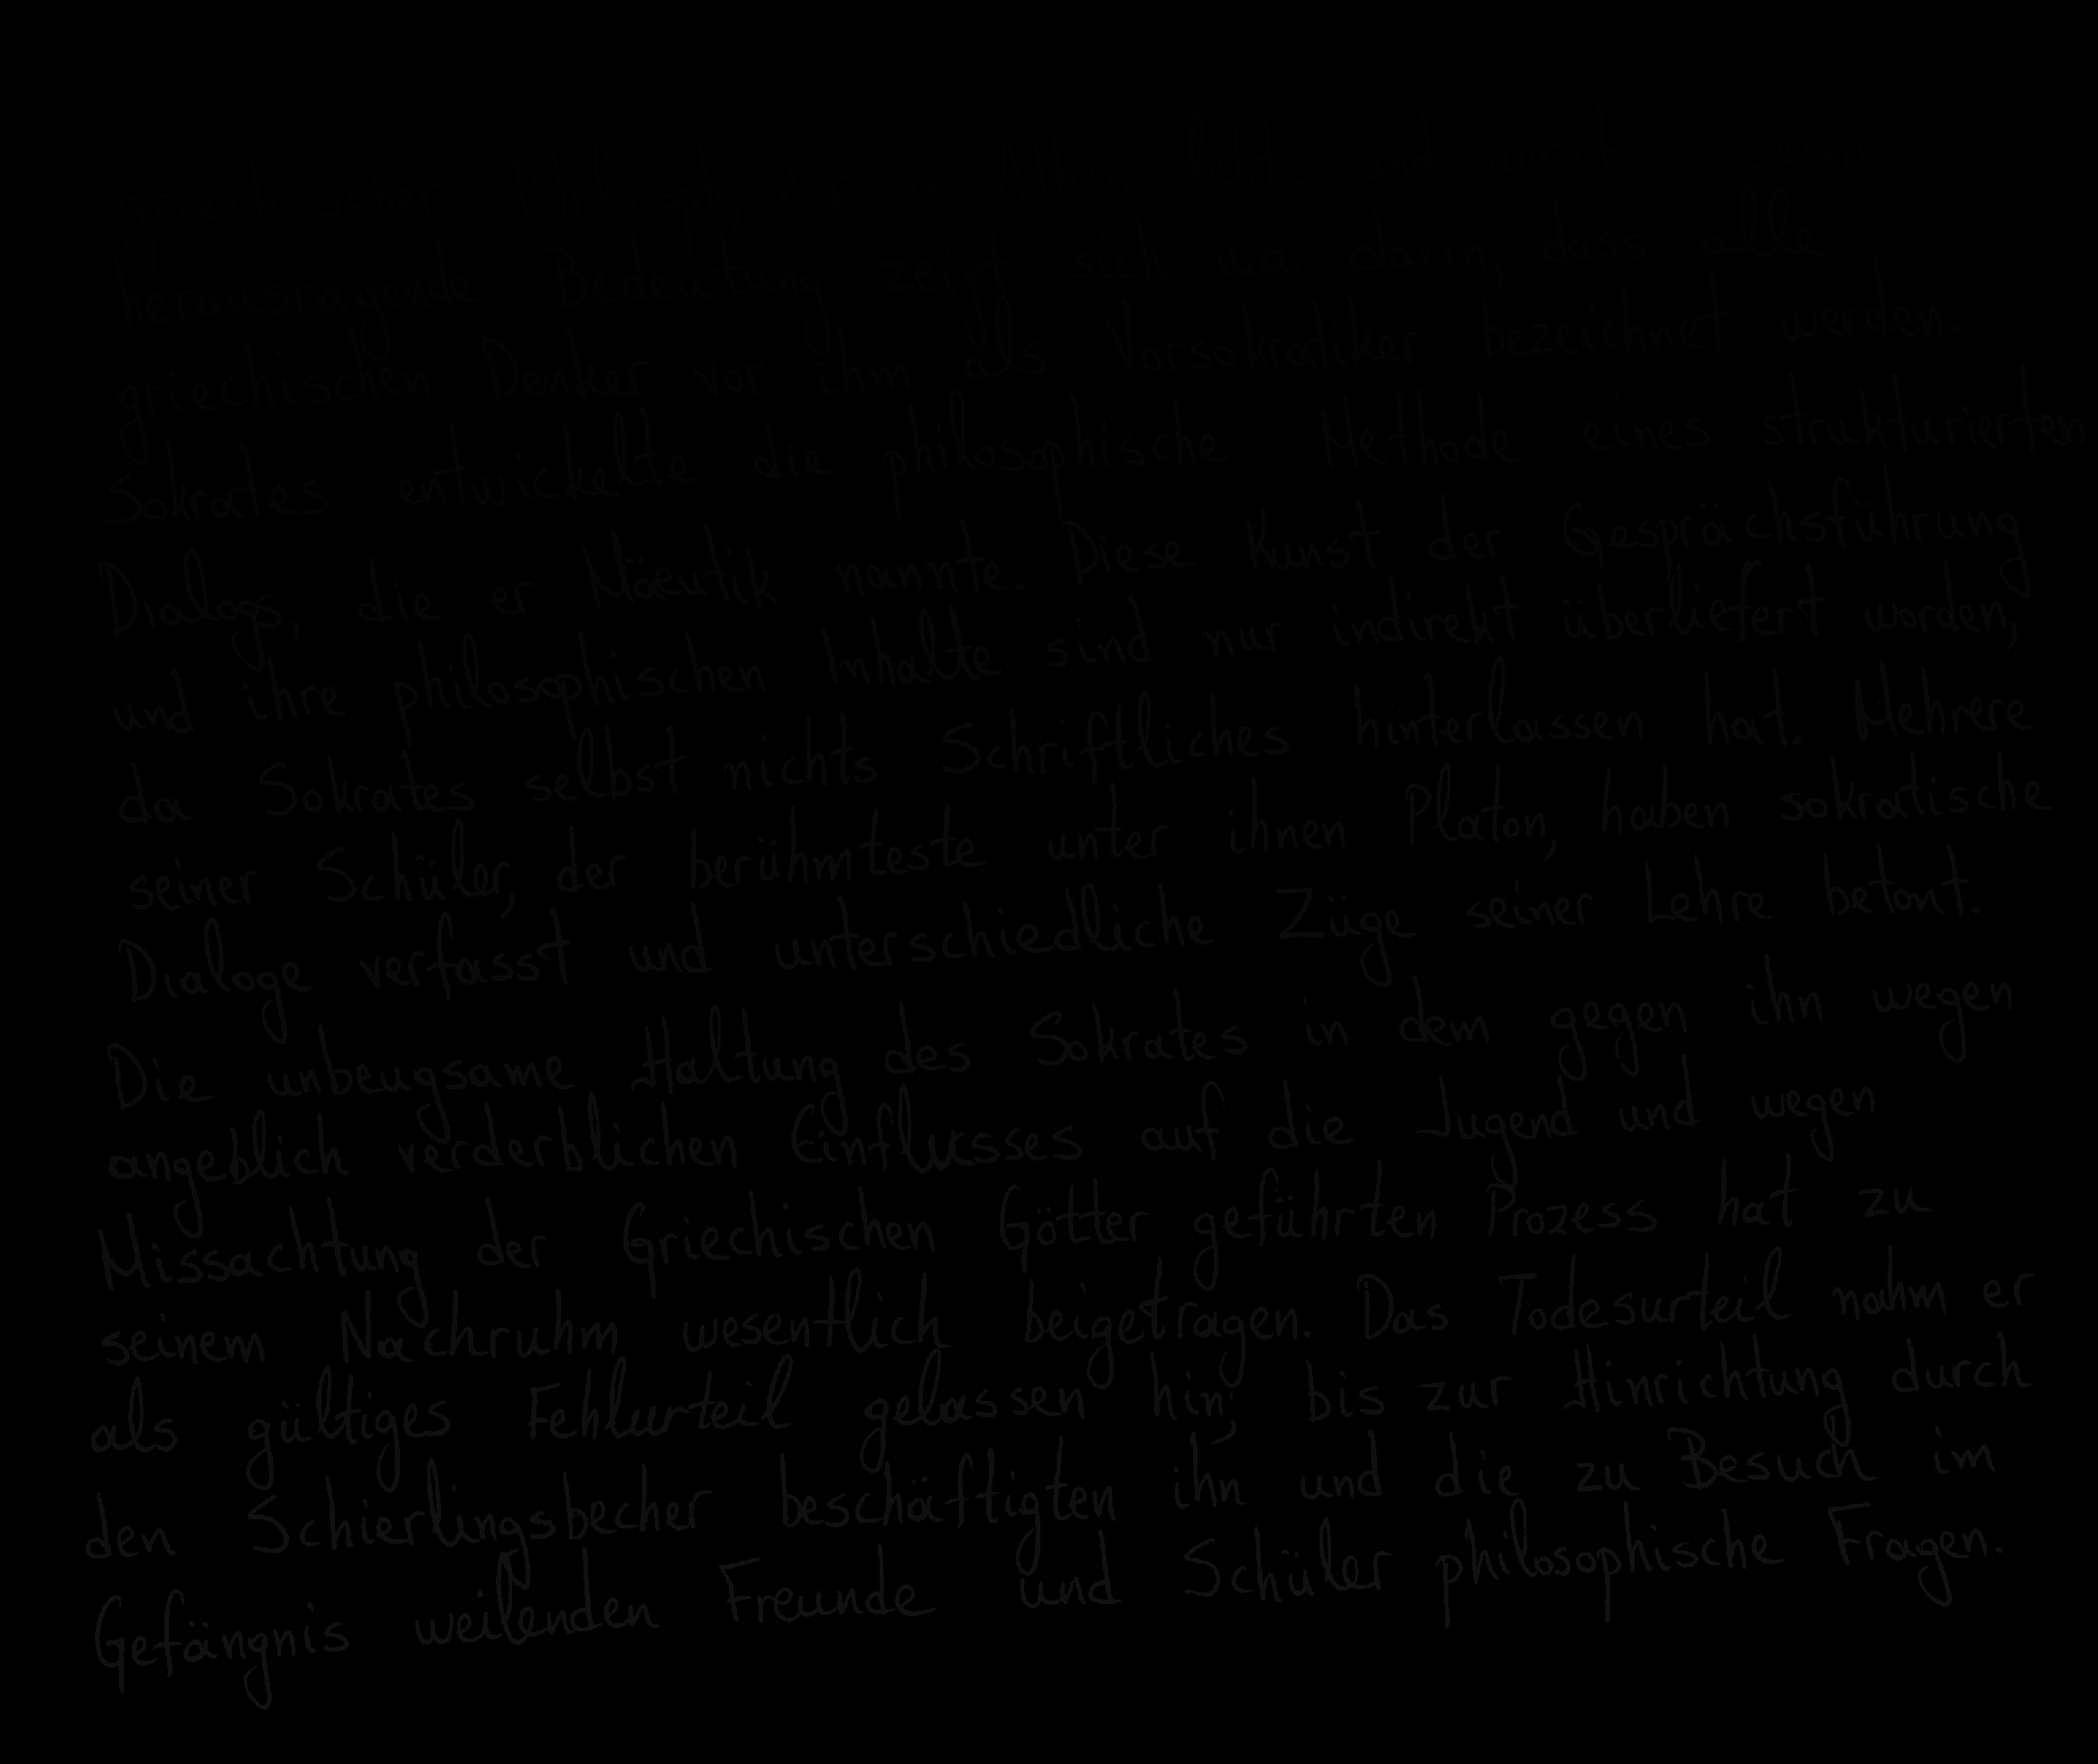 Sokrates war ein für das abendländische Denken grundlegender
griechischer Philosoph, der in Athen lebte und wirkte. Seine
herausragende Bedeutung zeigt sich u.a. darin, dass alle
griechischen Denker vor ihm als Vorsokratiker bezeichnet werden.
Sokrates entwickelte die philosophische Methode eines strukturierten
Dialogs, die er Mäeutik nannte. Diese Kunst der Gesprächsführung
und ihre philosophischen Inhalte sind nur indirekt überliefert worden,
da Sokrates selbst nichts Schriftliches hinterlassen hat. Mehrere
seiner Schüler, der berühmteste unter ihnen Platon, haben sokratische
Dialoge verfasst und unterschiedliche Züge seiner Lehre betont.
Die unbeugsame Haltung des Sokrates in dem gegen ihn wegen
angeblich verderblichen Einflusses auf die Jugend und wegen
Missachtung der Griechischen Götter geführten Prozess hat zu
seinem Nachruhm wesentlich beigetragen. Das Todesurteil nahm er
als gültiges Fehlurteil gelassen hin; bis zur Hinrichtung durch
den Schierlingsbecher beschäftigten ihn und die zu Besuch im
Gefängnis weilenden Freunde und Schüler philosophische Fragen.